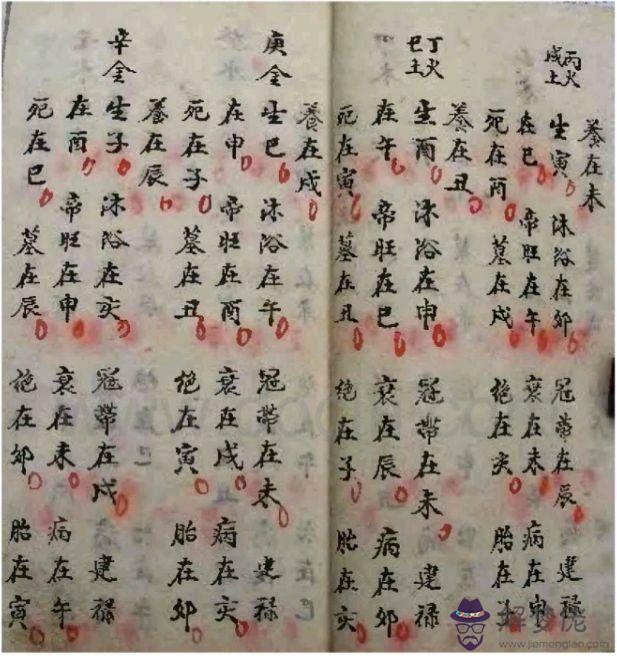 養在未
丙火
戊土
生寅 沐浴在卯 冠帶在辰 建祿
在巳 帝旺在午 衰在未 病在申
死在酉 墓在戌 絕在亥 胎在
養在丑
丁火
巳土
生酉 沐浴在申 冠帶在未 建祿
在午 帝旺在巳 衰在辰 病在卯
死在寅 墓在丑 絕在子 胎在亥
養在戌
庚金
生巳 沐浴在午 冠帶在未 建祿
在申 帝旺在酉 衰在戌 病在亥
死在子 墓在丑 絕在寅 胎在卯
養在辰
辛金
生子 沐浴在亥 冠帶在戌 建祿
在酉 帝旺在申 衰在未 病在午
死在巳 墓在辰 絕在卯 胎在寅
解夢佬
www.jiemonglao.com